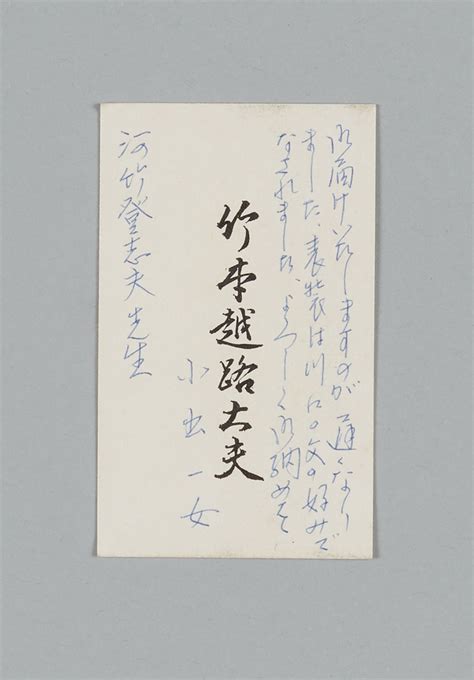 お届けいたしますのが遅くなり
ました、表装は川口の父の好みで
なされました、よろしくお納め
竹本越路大夫
小出一女
河竹登志夫先生